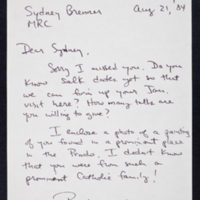 Sydney Brenner Aug 21, '84
MRC
Dear Sydney,
Sorry I missed you. Do you
know Salk dates yet so that
we can firm up your Jan.
visit here? How many talks are
you willing to give?
I enclose a photo of a painting
of you found in a prominent place
in the Prado. I didn't know
that you were from such a
prominent Catholic family!